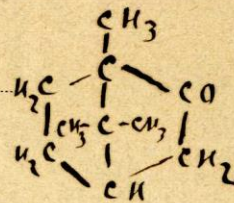 CH3
C
H2C CO
CH3-C-CH3
H2C CH2
CH